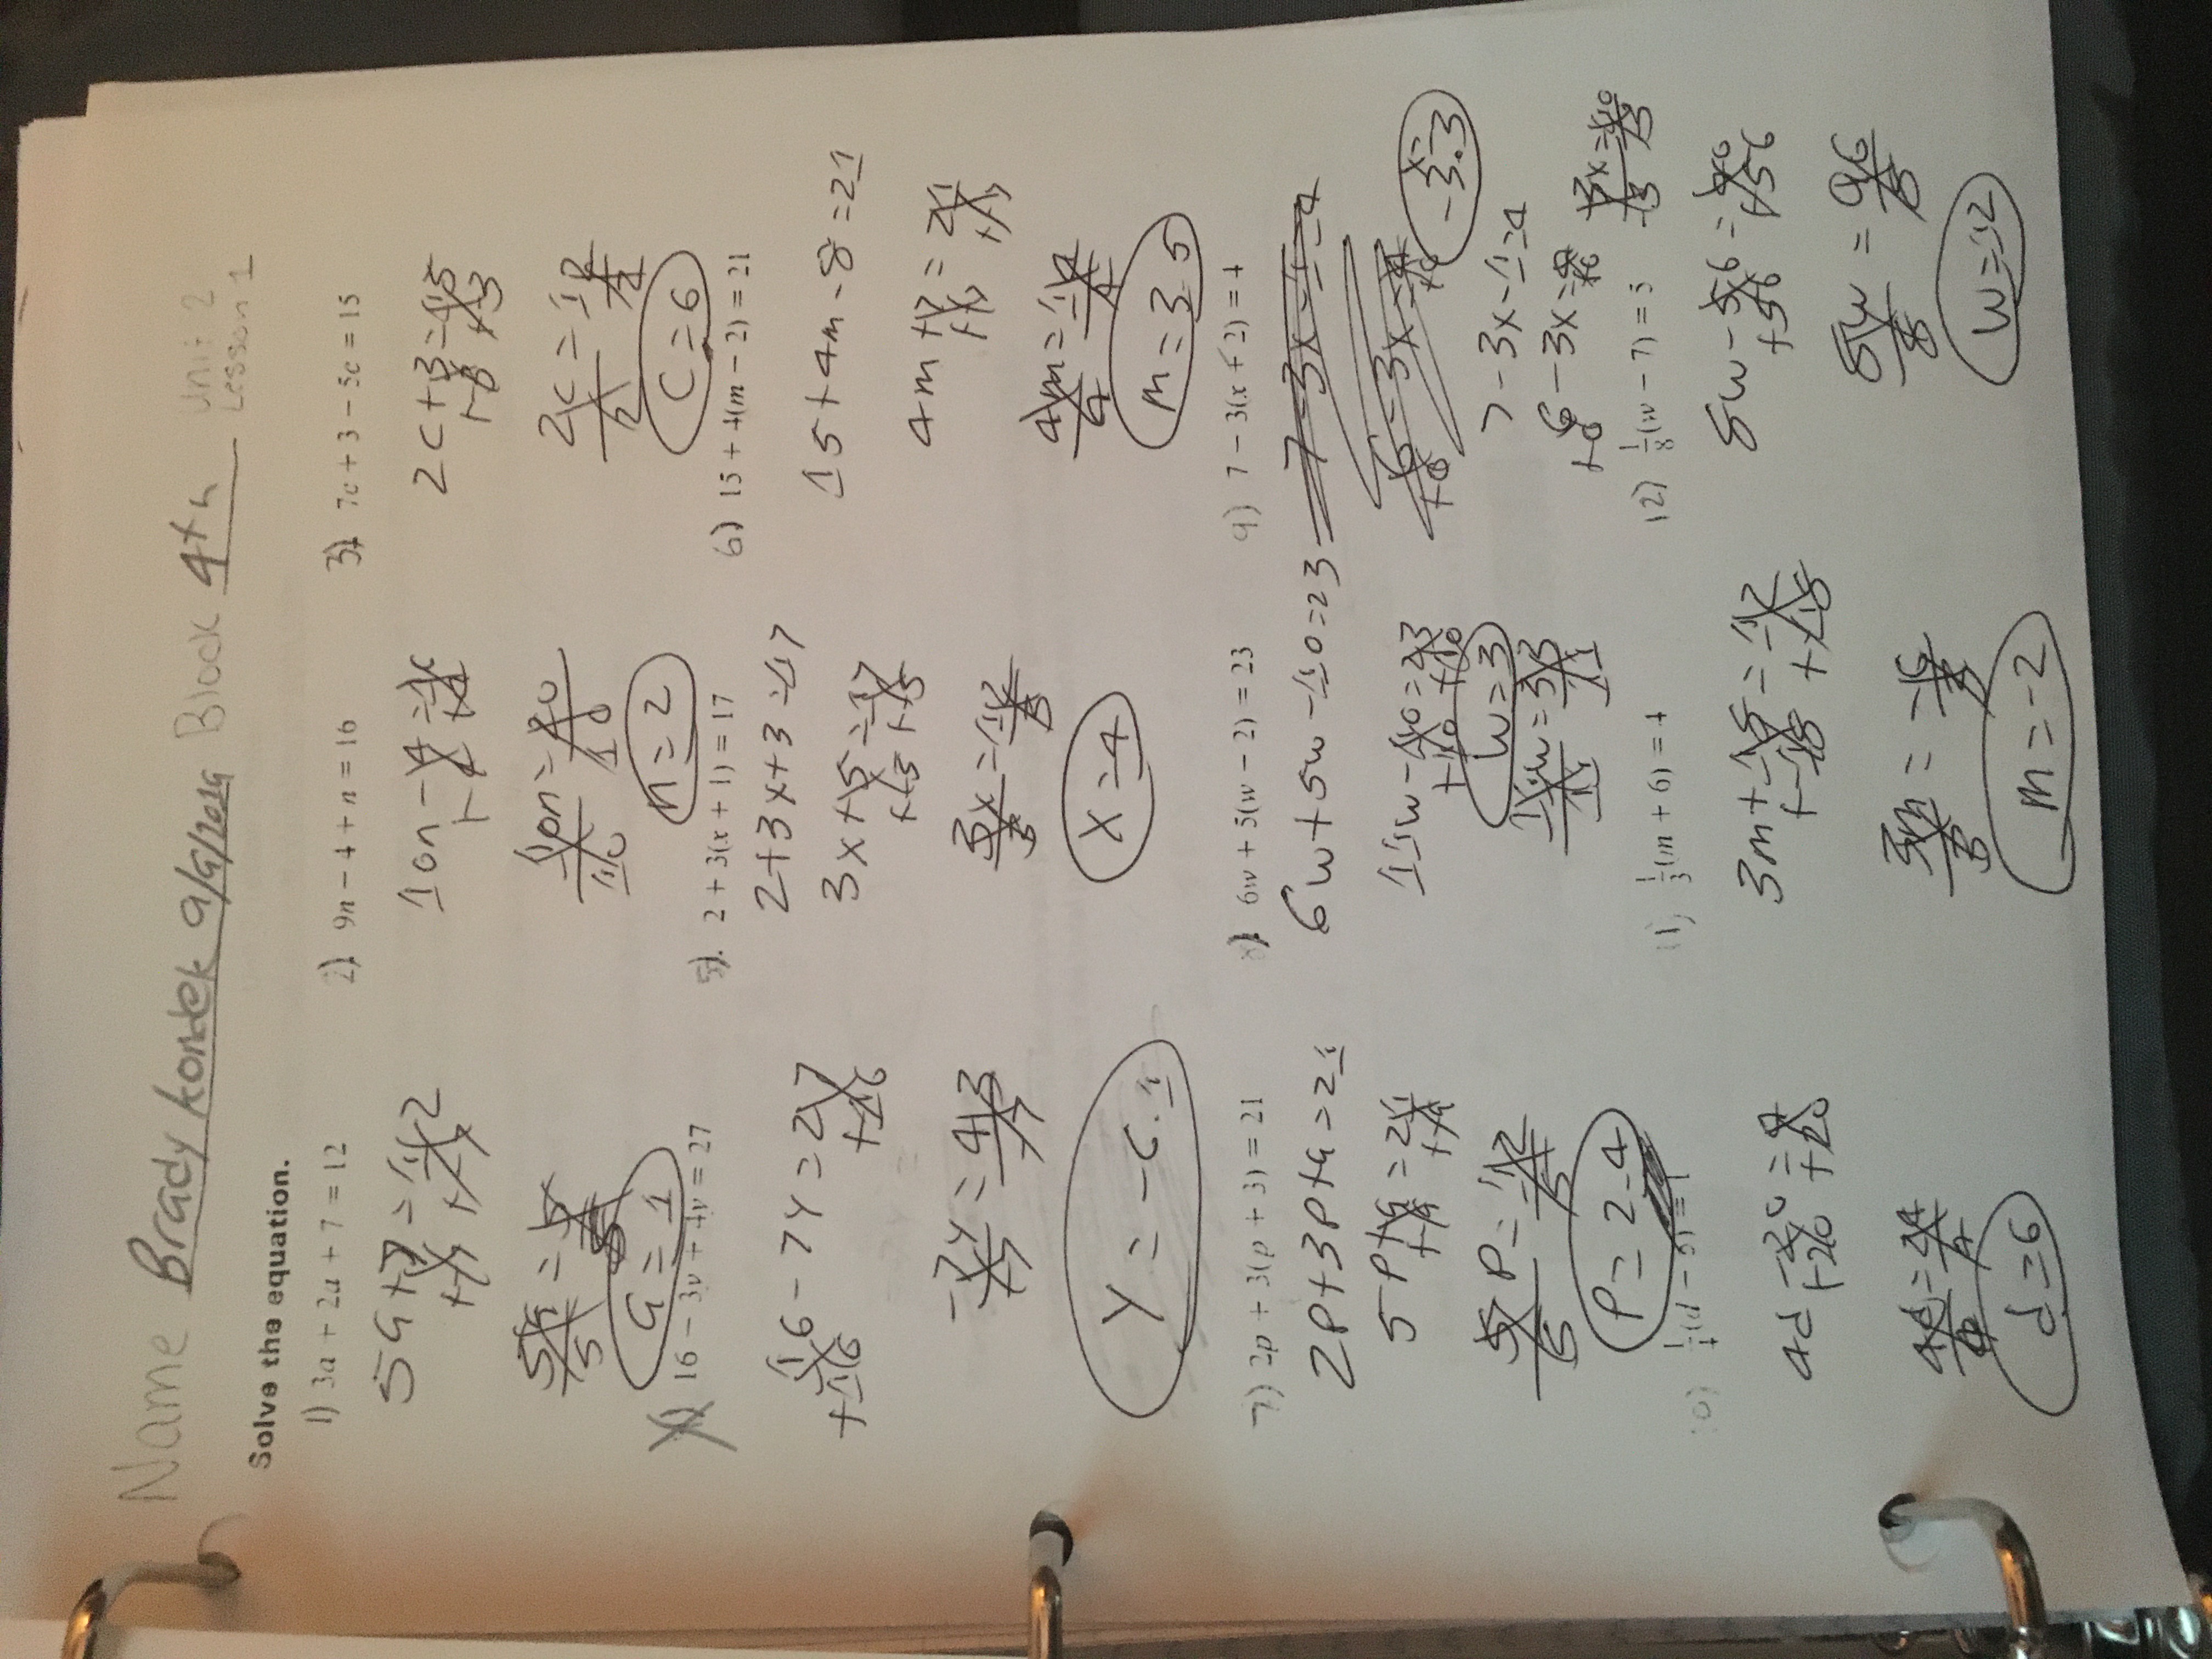 Name Brady Kondek 9/9/2019 Block 4th Unit 2
Lesson 1
Solve the equation.
1) 3a + 2a + 7 = 12
5a+7=12
+-7 +-7
5a = 5
5 5
a = 1
2). 9n − 4 + n = 16
10n-4=16
+4
10n=20
10 10
n=2
3) 7c + 3 − 5c = 15
2c+3=15
+-3 +-3
2c=12
2 2
c=6
16 − 3y + 4y = 27
16-7y=27
+16 +16
-7y=43
-7 -7
y=-6.1
5). 2 + 3(x + 1) = 17
2+3x+3=17
3x+5=17
3x=12
3 3
x=4
6) 15 + 4(m − 2) = 21
15+4m-8=21
4m+7=21
+-7 +-7
4m=14
4 4
m=3.5
7) 2p + 3(p + 3) = 21
2p+3p+9=21
5p+9=21
+-9 +-9
5p=12
5 5
p=2.4
8). 6w + 5(w − 2) = 23
6w+5w-10=23
11w-10=23
+10 +10
w=3
11w=33
11 11
9) 7 − 3(x + 2) = 4
7-3x-1=4
6-3x=4
+6 +6
x=
-3.3
7-3x-1=4
6-3x=4
+6 +6
-3x=10
-3 -3
10) 1/4(d − 5) = 1
4d-20=4
+20 +20
4d=24
4 4
d=6
11) 1/3(m + 6) = 4
3m+18=12
+-18 +-18
3m=-6
3 3
m=-2
12) 1/8(w − 7) = 5
8w-56=40
+56 +56
8w=96
8 8
w=12